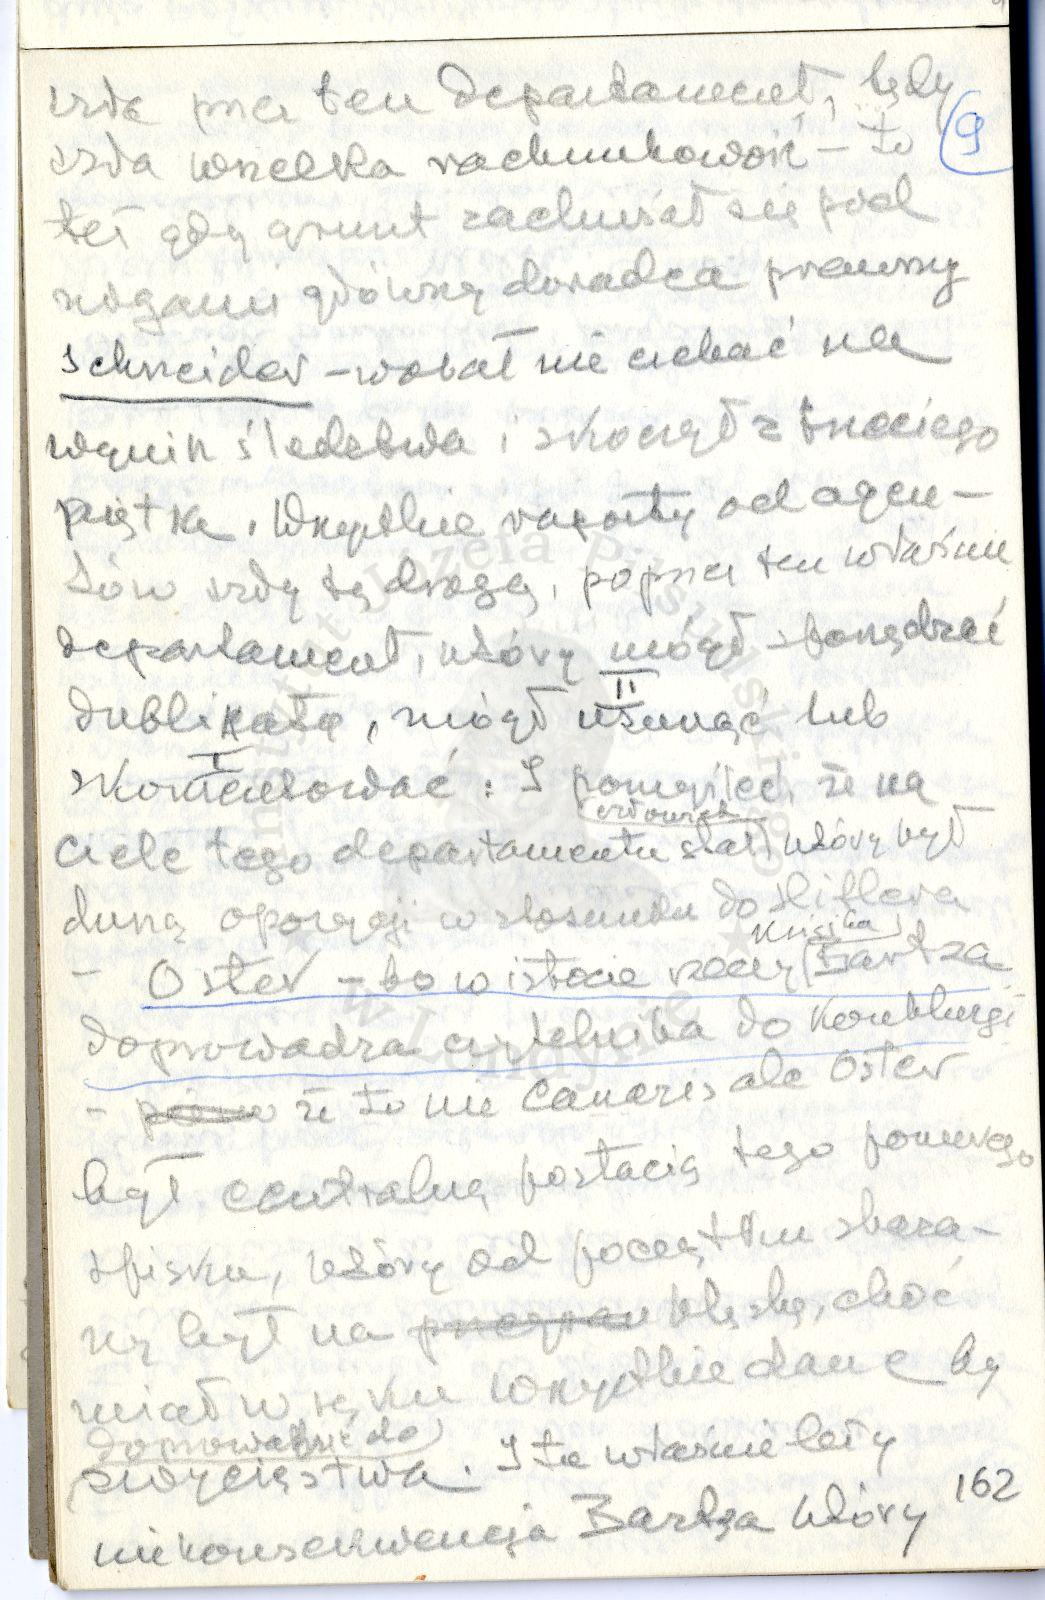 idą przez ten departament, tędy
szła wszelka rachunkowość – to
też gdy grunt zachwiał się pod
nogami główny doradca prawny
Schneider – wolał nie czekać na
wynik śledztwa i skoczył z trzeciego
piętra. Wszystkie raporty od agen-
tów szły tą drogą, poprzez ten właśnie
departament, który mógł sporządzać
dublikaty, mógł II usunąć lub
I skomentować: I pomyśleć, że na
człowiek
czele tego departamentu stał, który był
duszą opozycji w stosunku do Hitlera
książka
– Oster – to w istocie rzeczy Bartza
doprowadza czytelnika do konkluzji
– że to nie Canaris ale Oster
był centralną postacią tego ponurego
spisku, który od początku skaza-
ny był na klęskę, choć
miał w ręku wszystkie dane by
doprowadzić do
zwycięstwa. I tu właśnie leży
niekonsekwencja Bartza który
9
162
Instytut Józefa Piłsudskiego
w Londynie